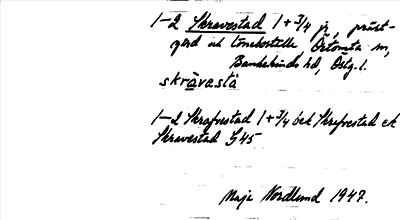 1-2 Skravestad 1+3/4 jz, präst-
gård och Örtomta sn,
Bankekinds hd, Östg. l.
skràvastà
1-2 Skrafvestad 1+3/4 bek Skrefvestad ek
Skravestad G45
Maja Nordlund 1947.